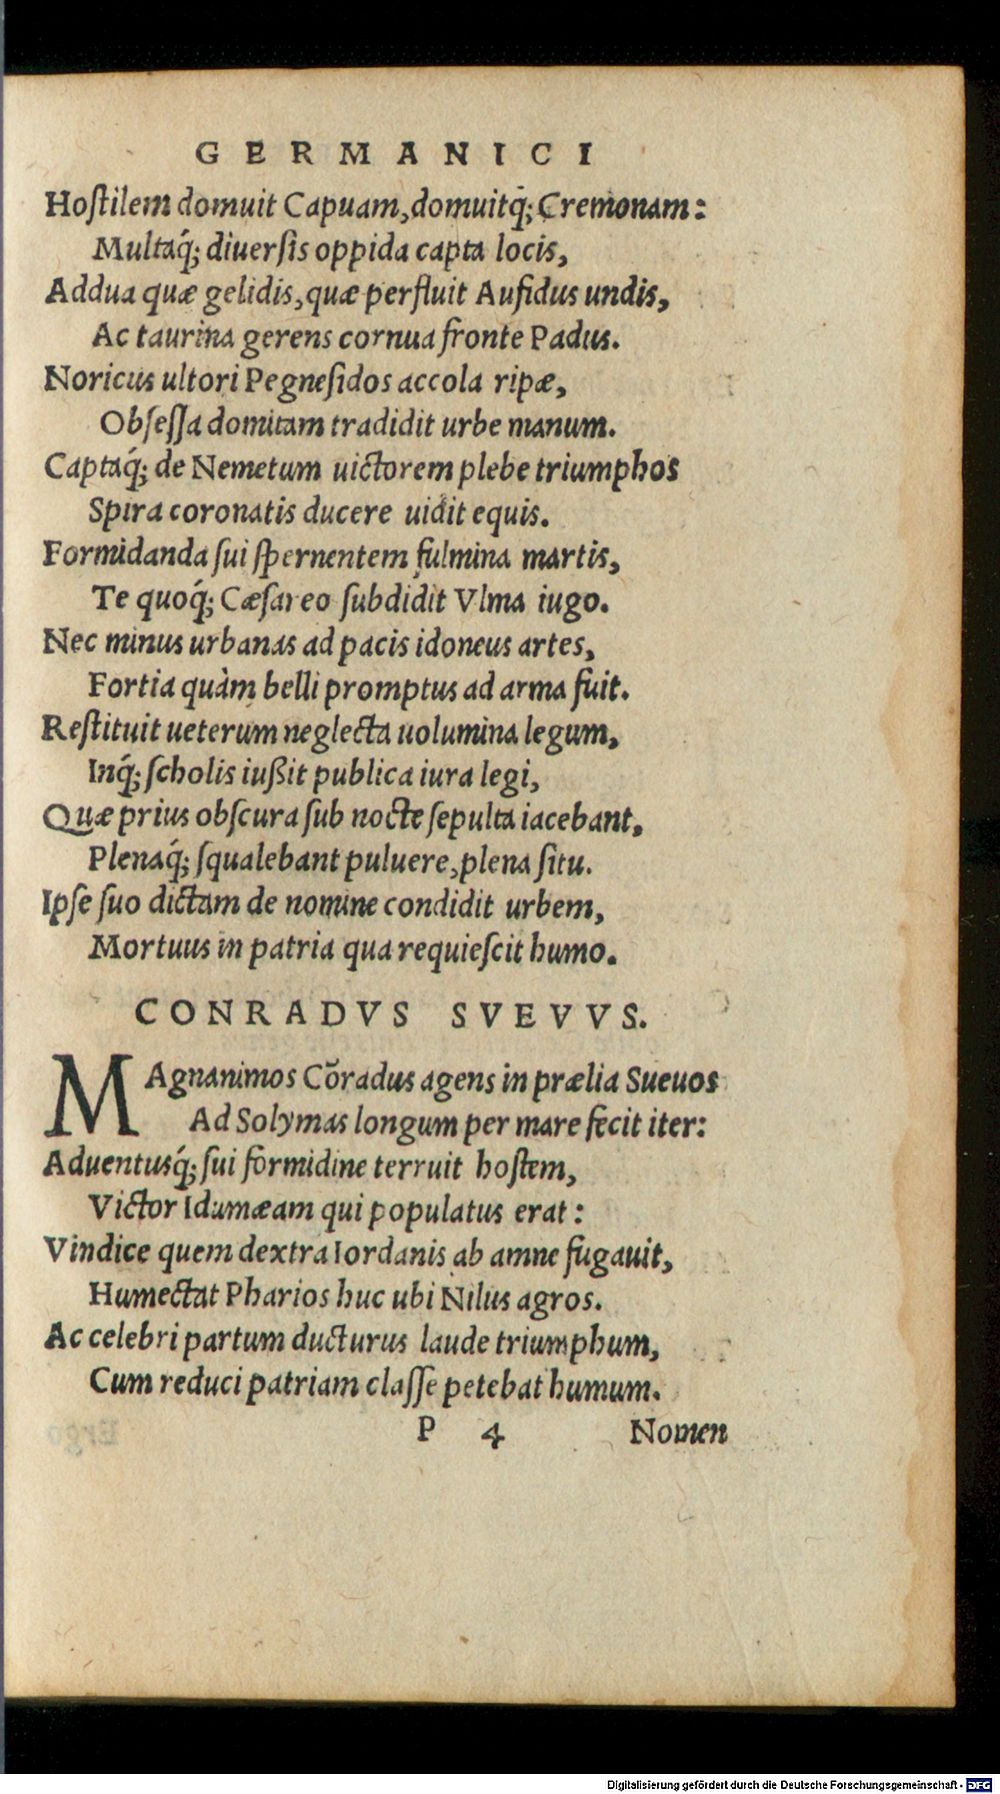 GERMANICI
Hoſtilem domuit Capuam, domuitq́; Cremonam:
Multaq́; diuerſis oppida capta locis,
Addua quæ gelidis, quæ perfluit Aufidus undis,
Ac taurina gerens cornua fronte Padus.
Noricus ultori Pegneſidos accola ripæ,
Obſeſſa domitam tradidit urbe manum.
Captaq́; de Nemetum uictorem plebe triumphos
Spira coronatis ducere uidit equis.
Formidanda ſui ſpernentem fulmina martis,
Te quoq́; Cæſareo ſubdidit Vlma iugo.
Nec minus urbanas ad pacis idoneus artes,
Fortia quàm belli promptus ad arma fuit.
Reſtituit ueterum neglecta uolumina legum,
Inq́; ſcholis iußit publica iura legi,
Quæ prius obſcura ſub nocte ſepulta iacebant,
Plenaq́; ſqualebant puluere, plena ſitu.
Ipſe ſuo dictam de nomine condidit urbem,
Mortuus in patria qua requieſcit humo.
CONRADVS SVEVVS.
MAgnanimos Cõradus agens in prælia Sueuos
Ad Solymas longum per mare fecit iter:
Aduentusq́; ſui formidine terruit hoſtem,
Victor Idumæam qui populatus erat:
Vindice quem dextra Iordanis ab amne fugauit,
Humectat Pharios huc ubi Nilus agros.
Ac celebri partum ducturus laude triumphum,
Cum reduci patriam claſſe petebat humum.
P 4 Nomen
Digitalisierung gefördert durch die Deutsche Forschungsgemeinschaft - DFG